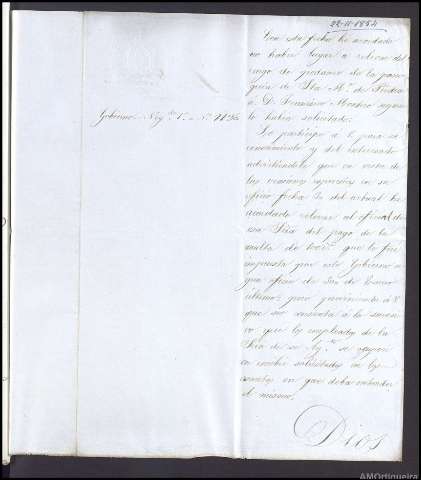 22-11-1854
Con esta fecha he acordado
no haber lugar a relevar del
cargo de pedaneo de la parro-
quia de Sta. Mª. de
a D. Francisco segun
lo habia solicitado.
Gobierno = Neg.do 1.º = N.º
Lo participo a V. para su
conocimiento y del interesado
advirtiendole que en vista de
las razones espuestas en su
oficio fecha del actual he
acordado relevar al oficial de
esa Sria del pago de la
multa de que le fue
impuesta por este Gobierno
oficio de de
último; pero previniendo a V
que no consienta a lo sucesi-
vo que los empleados de la
Sria de ese Ay.to se ocupen
en escribir solicitudes en los
asuntos en que deba entender
el mismo.
Dios
AMOrtigueira